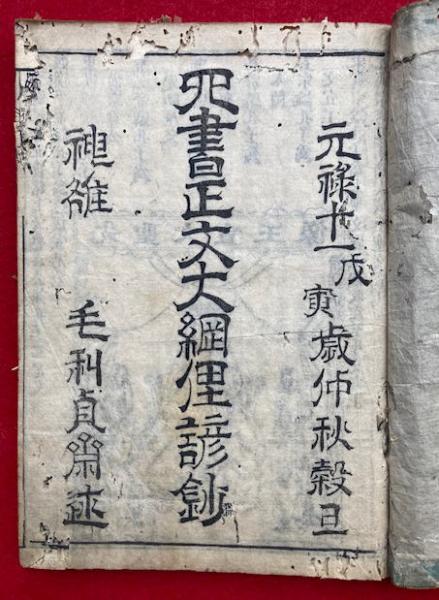 元禄十一戊寅歳仲秋穀旦
四書正文大綱俚諺鈔
毛利貞齋述